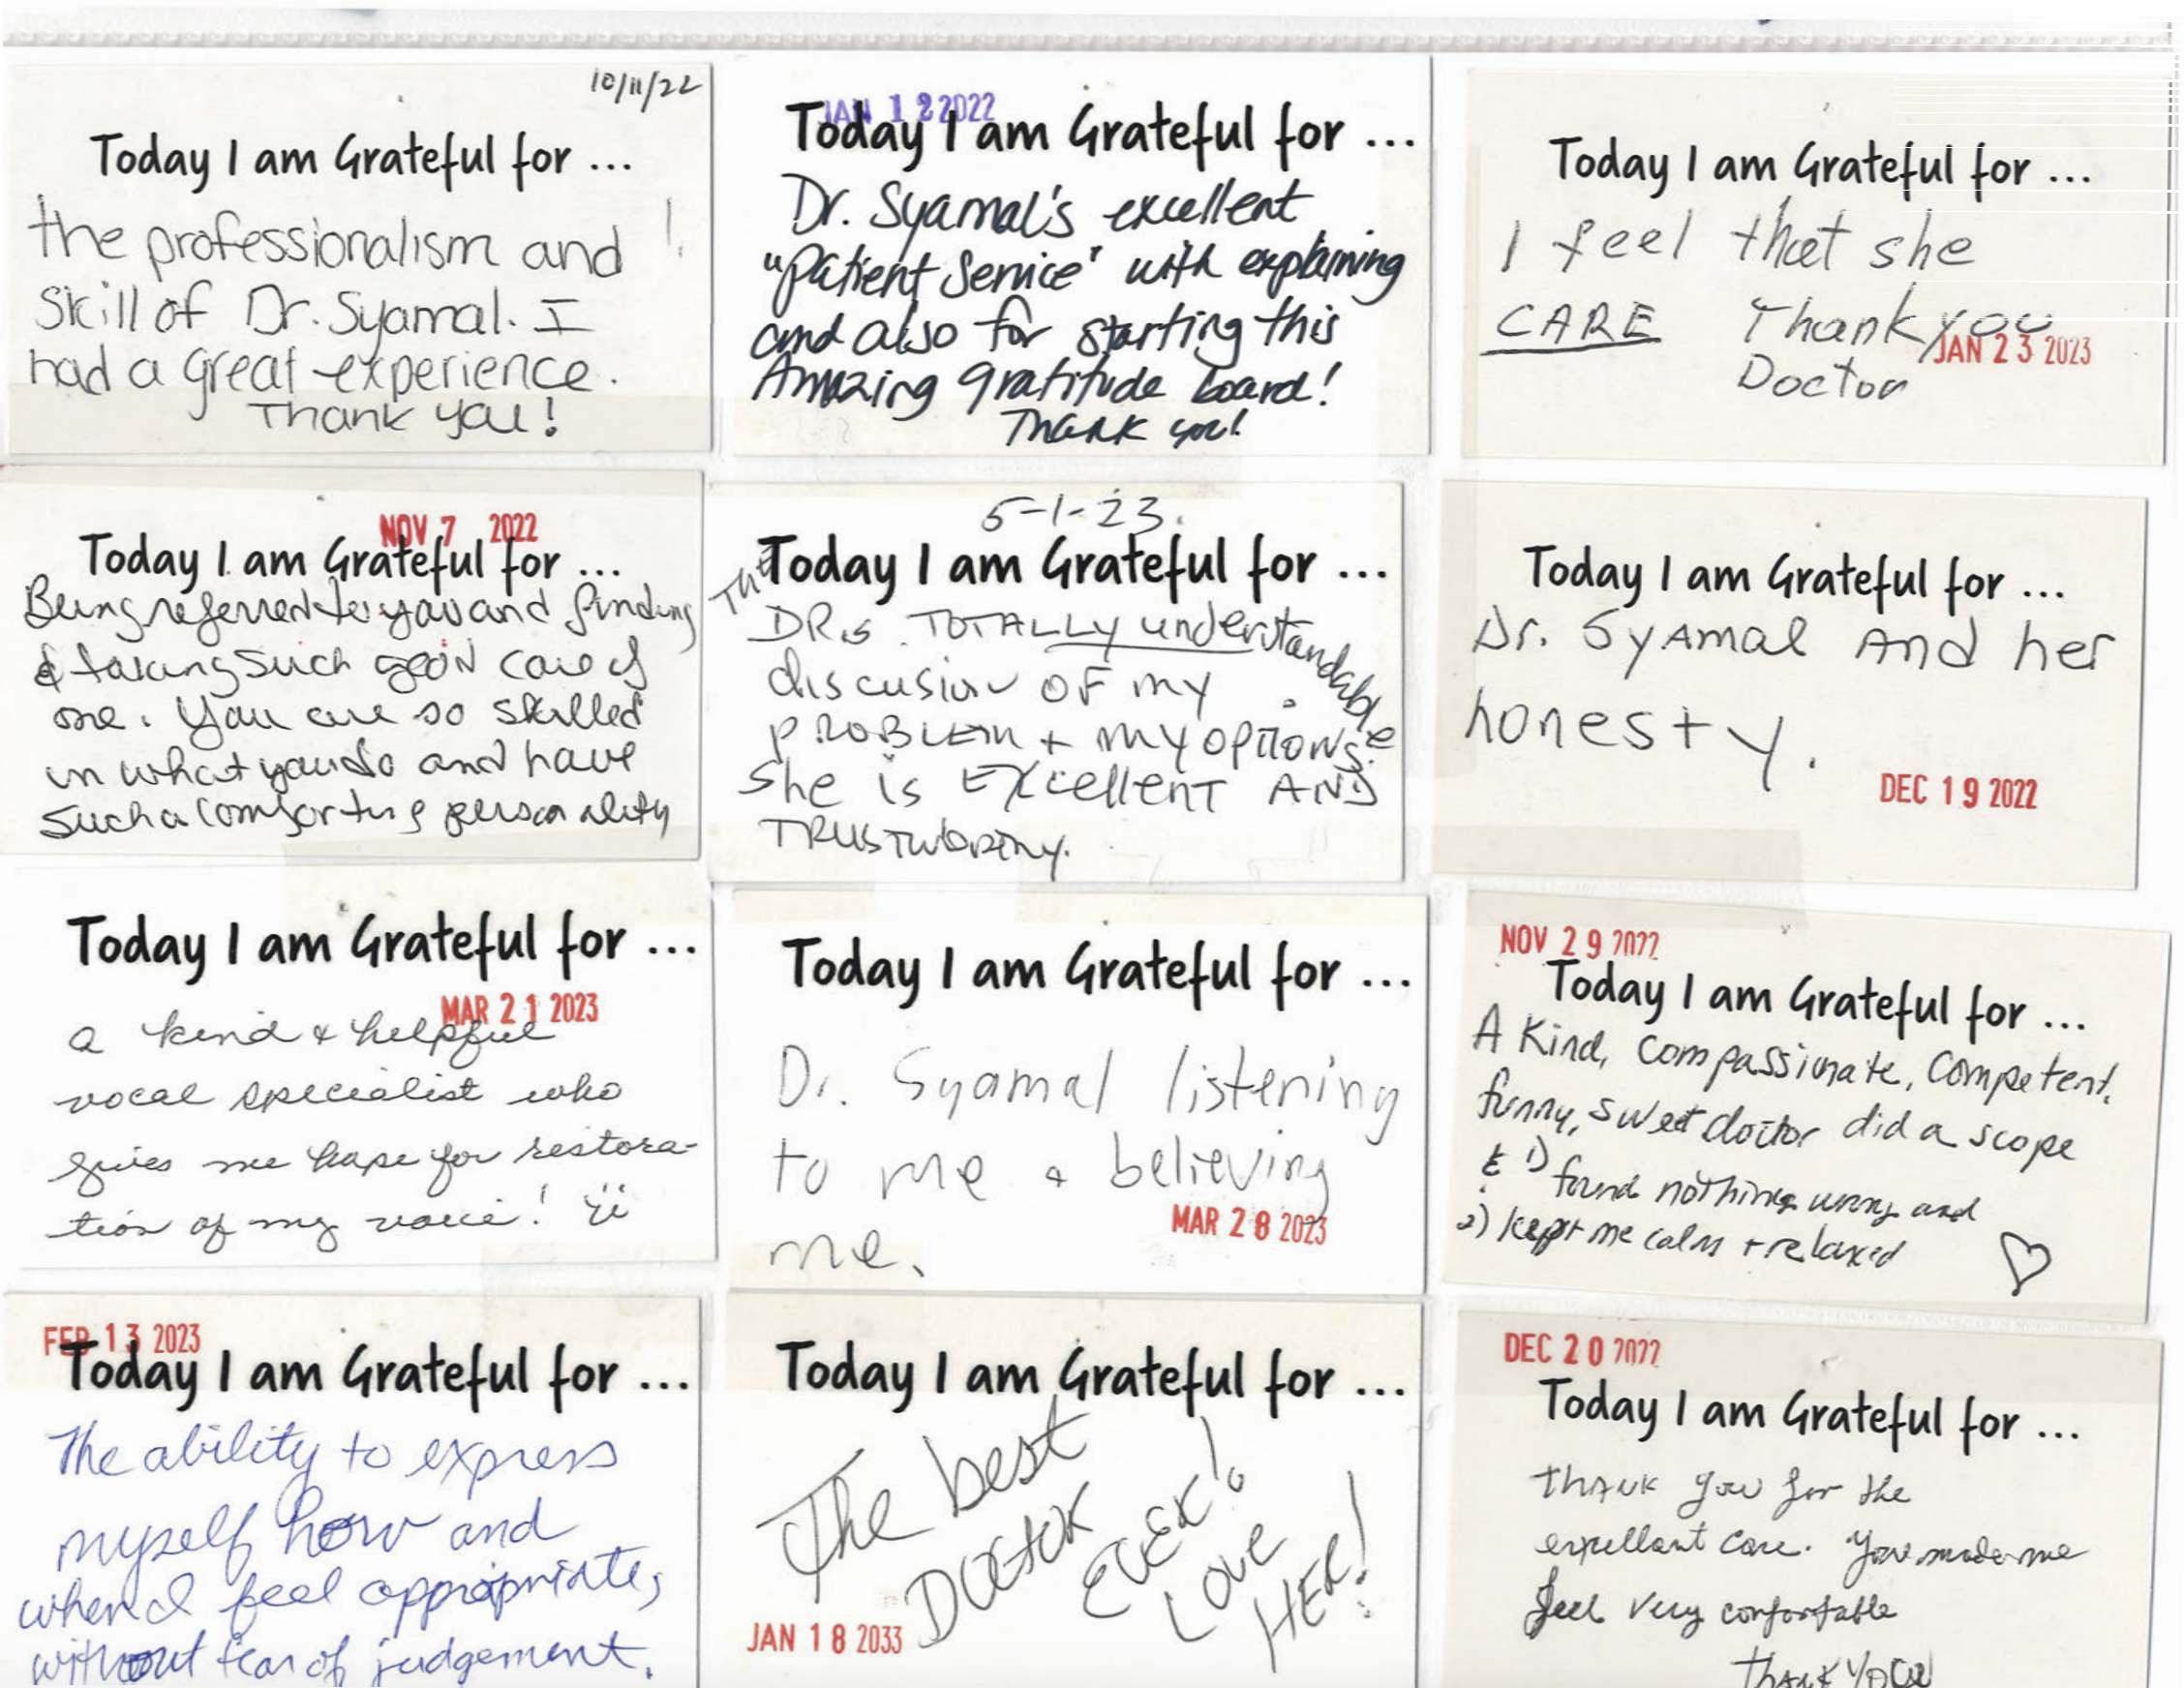 10/11/22
Today I am Grateful for ...
the professionalism and
skill of Dr. Syamal. I
had a great experience.
Thank you!
JAN 12 2022
Today I am Grateful for ...
Dr. Syamal's excellent
"Patient Service" with explaining
and also for starting this
Amazing gratitude board!
Thank you!
Today I am Grateful for ...
I feel that she
CARE Thank you
JAN 23 2023
Doctor
NOV 7 2022
Today I am Grateful for ...
Being referred to you and finding
& taking such good care of
me. You are so skilled
in what you do and have
such a comforting personality
5-1-23.
Today I am Grateful for ...
The
DRs TOTALLY understandable
discusion OF my
PROBLEM + my OPTIONS.
She is EXcellenT AND
TRUSTWORTHY.
Today I am Grateful for ...
Dr. SyAmal And her
honesty.
DEC 19 2022
Today I am Grateful for ...
MAR 21 2023
a kind & helpful
vocal specialist who
gives me hope for restora-
tion of my voice!
Today I am Grateful for ...
Dr. Syamal listening
to me & believing
MAR 28 2023
me.
NOV 29 2022
Today I am Grateful for ...
A Kind, compassionate, competent,
funny, sweet doctor did a scope
& 1) found nothing wrong and
2) kept me calm + relaxed
FEB 13 2023
Today I am Grateful for ...
The ability to express
myself how and
when I feel appropriate,
without fear of judgement.
Today I am Grateful for ...
The best
DOCTOR
EVER!
LOVE
HER!
JAN 18 2033
DEC 20 2022
Today I am Grateful for ...
Thank you for the
expellant care. You made me
feel very confortable
Thank You